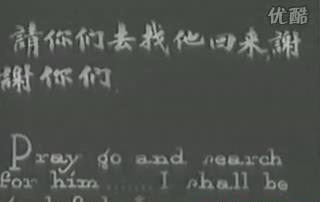 优酷
請你们去找他回来,謝
謝你们.
Pray go and search
for him ...... I shall be